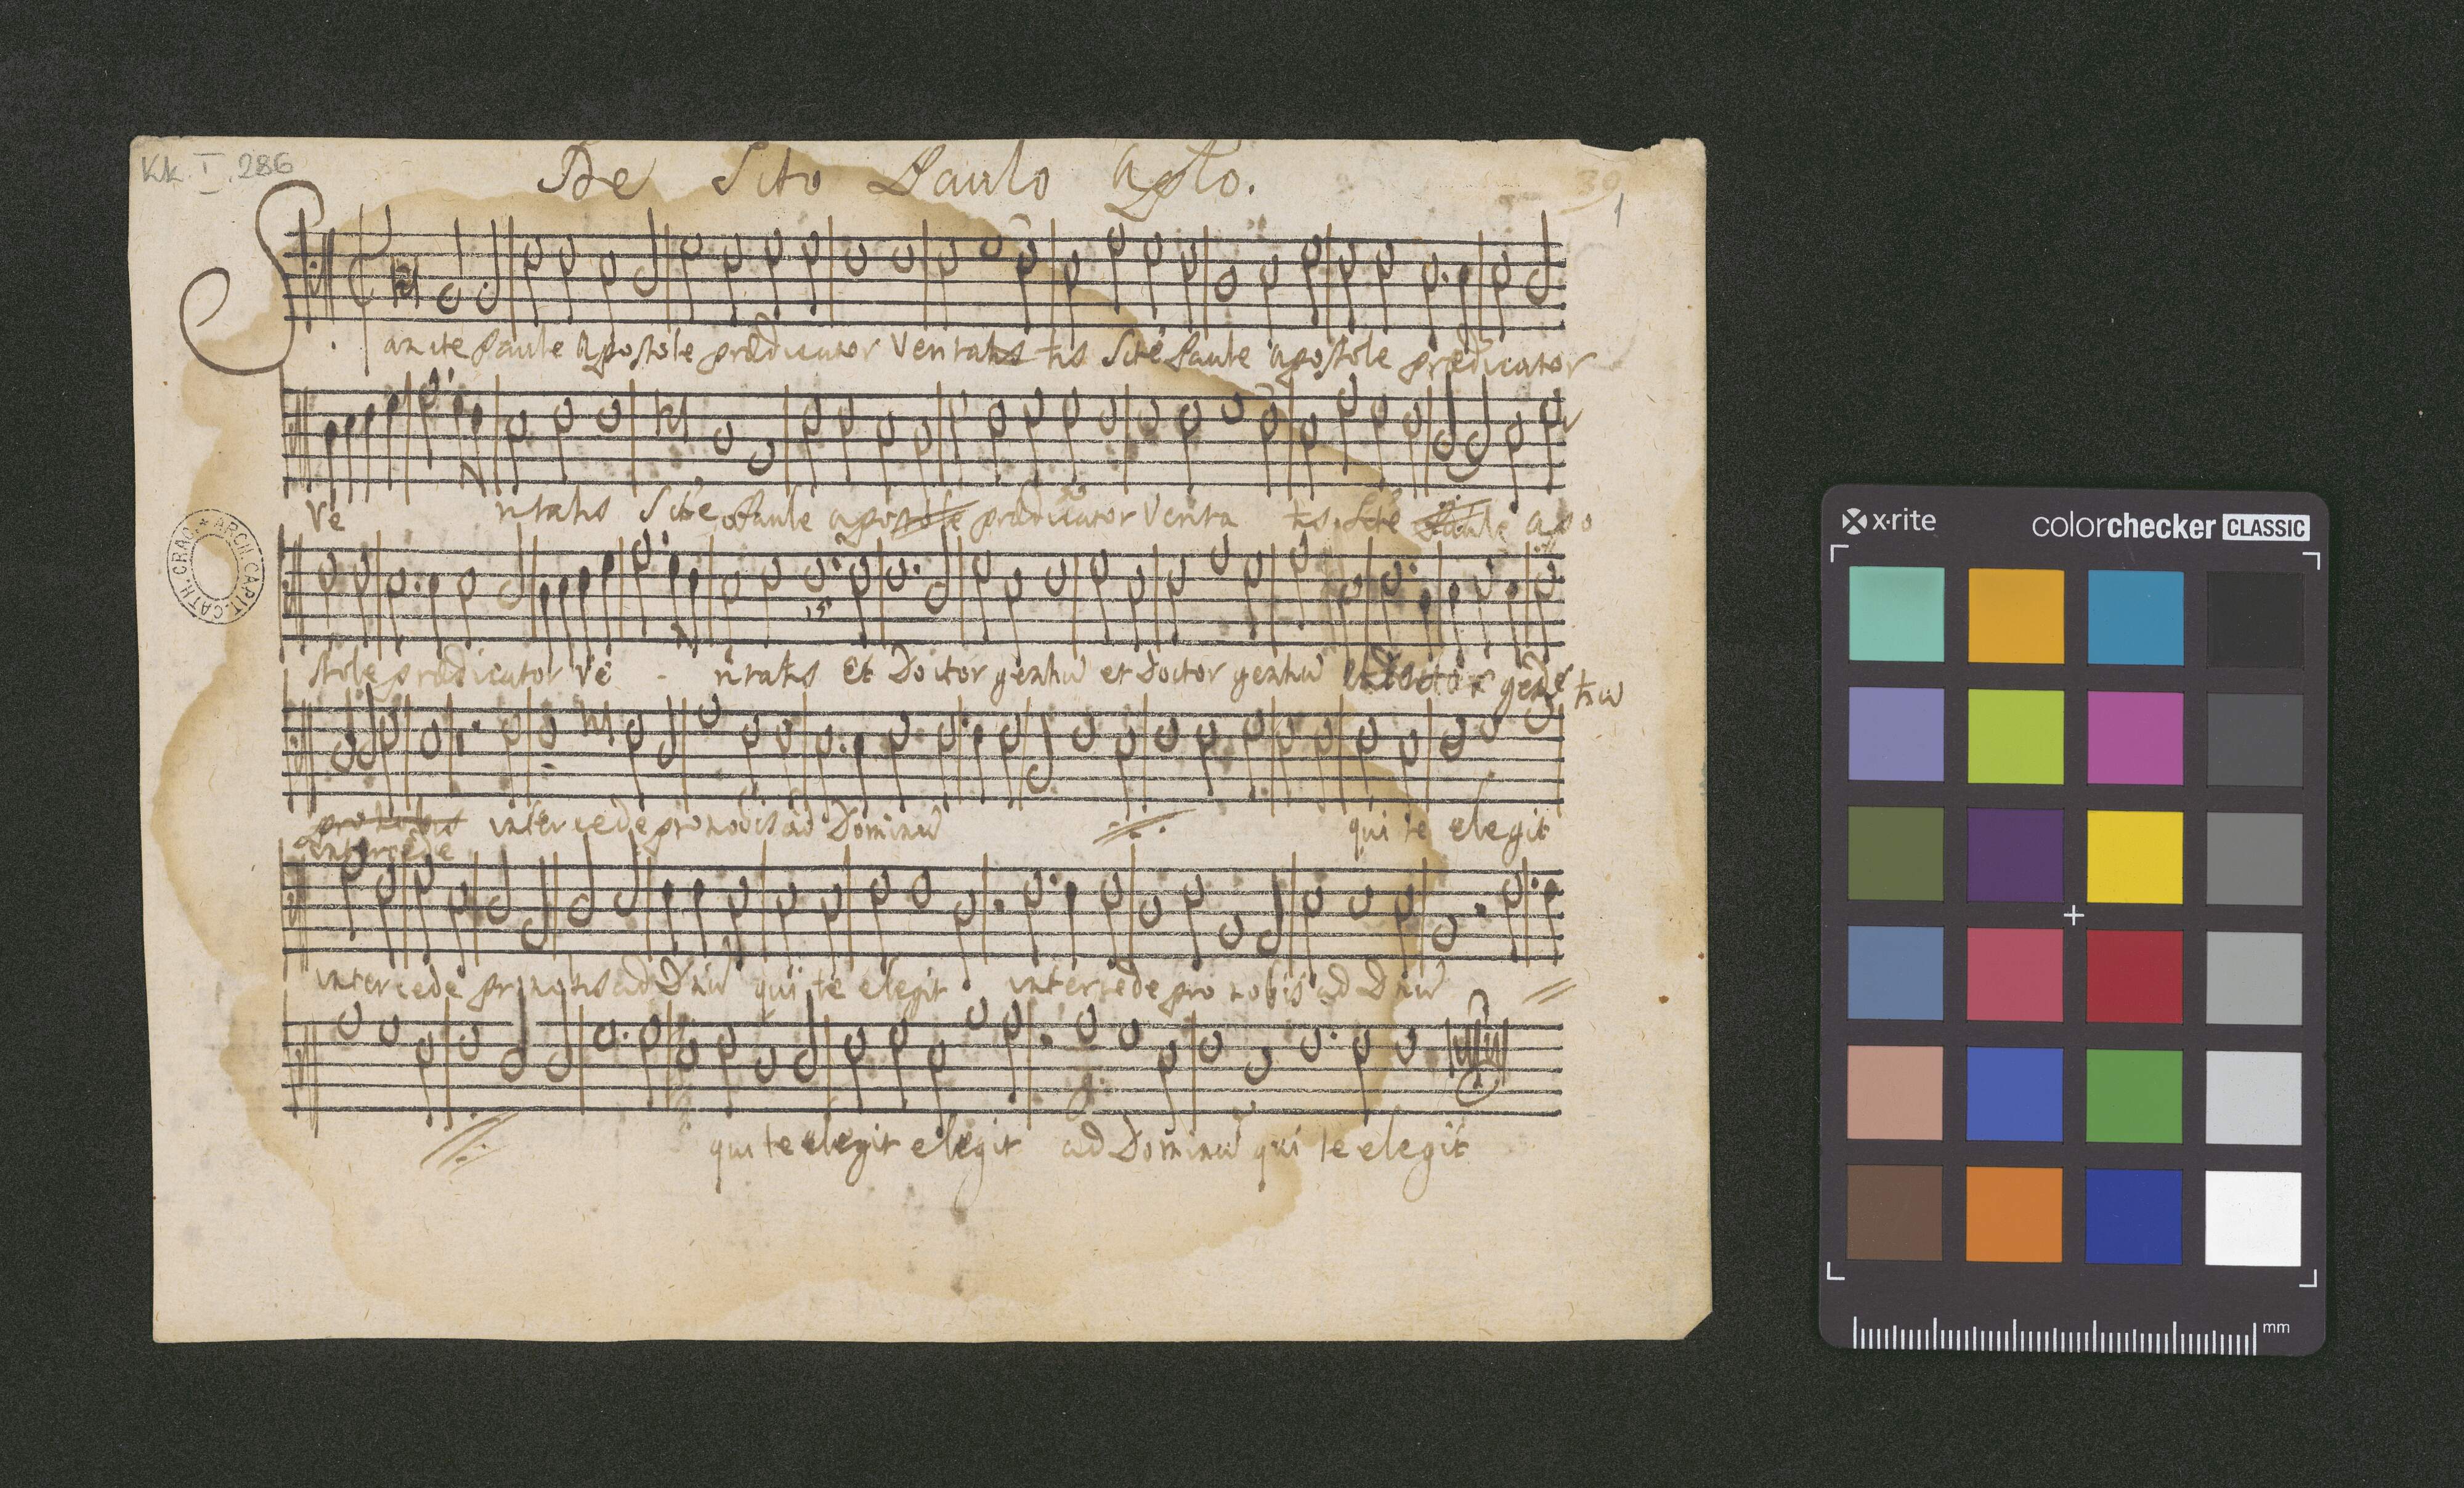 Kk. I. 286
De Scto Paulo Aplo.
39
1
Sancte Paule Apostole prædicator Veritatis tis Scte Paule apostole prædicator
Ve ritatis Scte Paule apostole prædicator Verita tis. Scte Paule apo
stole prædicator Ve - ritatis et Doctor gentiū et Doctor gentiū et Doctor gen tiū
pro nobis intercede pro nobis ad Dominū qui te elegit
intercede
intercede pro nobis ad Dnū qui te elegit intercede pro nobis ad Dnū
qui te elegit elegit ad Dominū qui te elegit
ARCH. CAPIT. CATH. CRAC. *
x·rite
colorchecker CLASSIC
mm